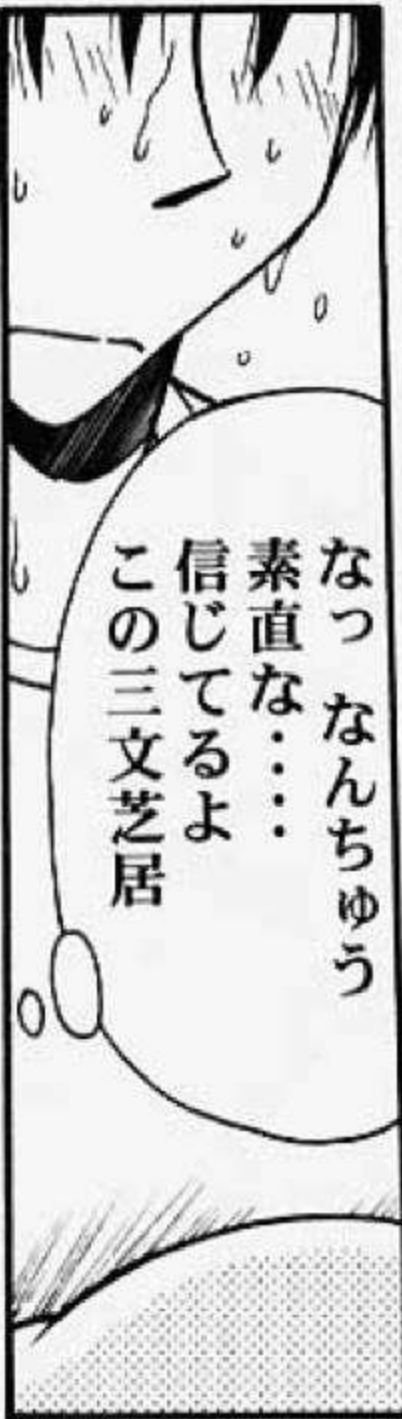 なっ なんちゅう
素直な‥‥
信じてるよ
この三文芝居